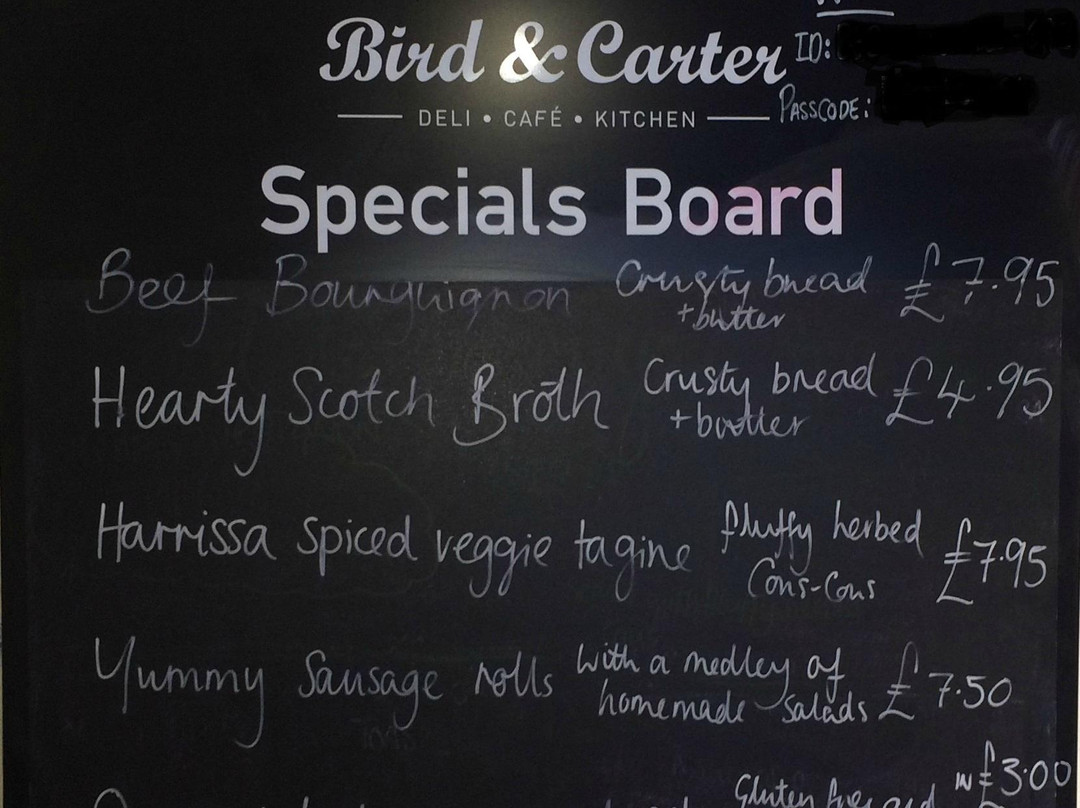 Bird & Carter
ID:
DELI • CAFÉ • KITCHEN
PASSCODE:
Specials Board
Beef Bourguignon Crusty bread £7.95
+butter
Hearty Scotch Broth Crusty bread £4.95
+butter
Harrissa spiced veggie tagine fluffy herbed £7.95
Cous-Cous
Yummy Sausage rolls with a medley of £7.50
homemade salads
Gluten £3.00